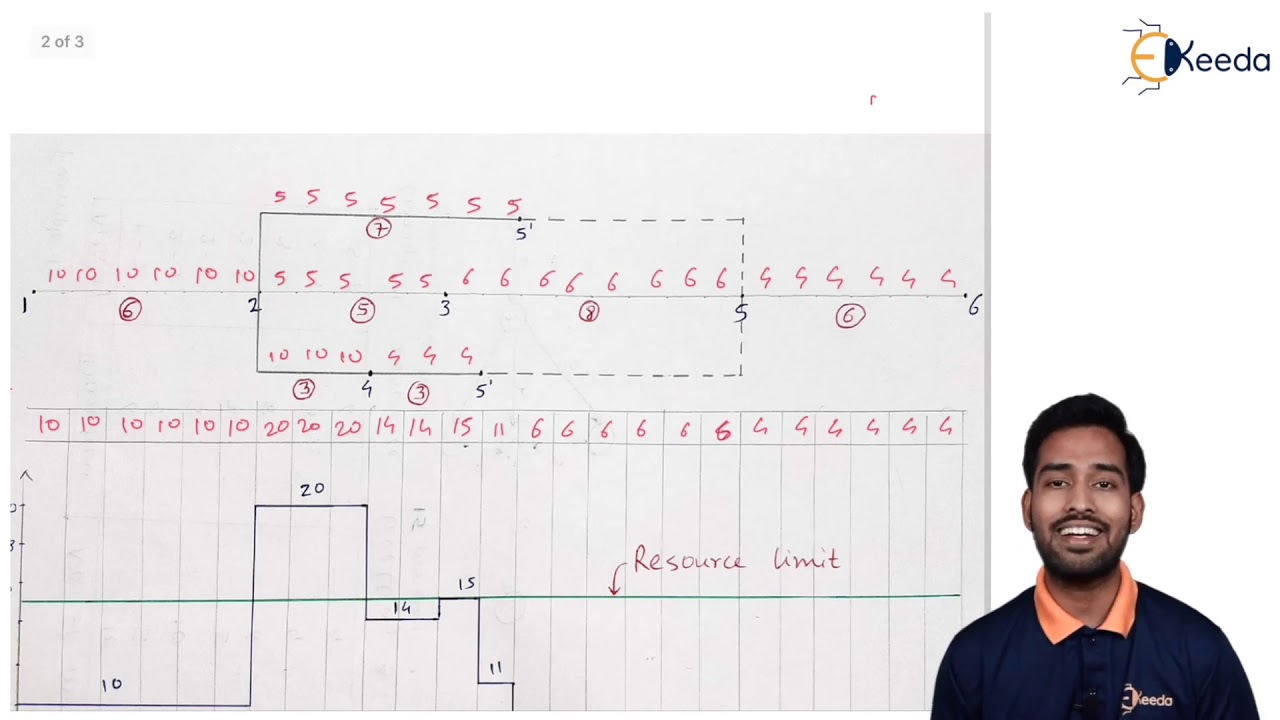 2 of 3
EKeeda
5 5 5 5 5 5 5
7
5'
10 10 10 10 10 10 5 5 5 5 5 6 6 6 6 6 6 6 6 4 4 4 4 4 4
1 6 2 5 3 8 5 6 6
10 10 10 4 4 4
3 4 3 5'
10 10 10 10 10 10 20 20 20 14 14 15 11 6 6 6 6 6 6 4 4 4 4 4 4
20
Resource limit
15
14
11
10
EKeeda